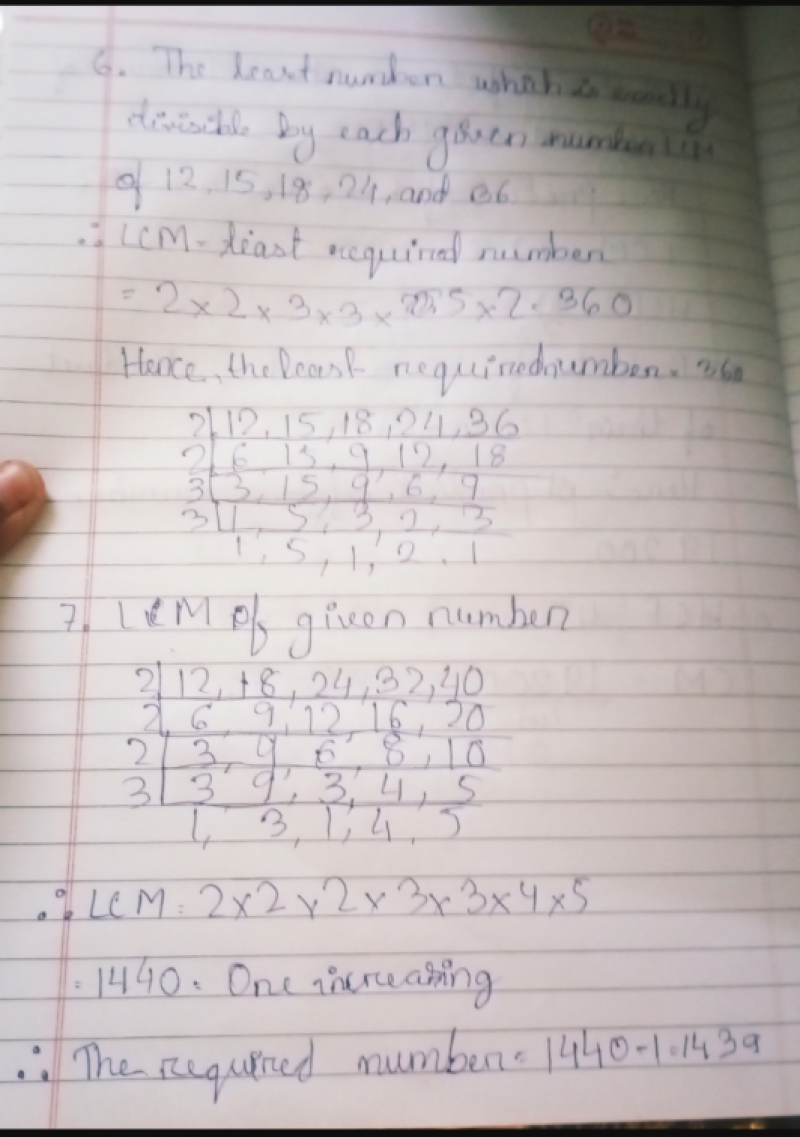 6. The least number which is exactly
divisible by each given number LCM
of 12, 15, 18, 24, and 36
∴ LCM = least required number
= 2 × 2 × 3 × 3 × 5 × 2 = 360
Hence, the least required number = 360
2 | 12, 15, 18, 24, 36
2 | 6 15, 9, 12, 18
3 | 3, 15, 9, 6, 9
3 | 1, 5, 3, 2, 3
1, 5, 1, 2, 1
7. LCM of given number
2 | 12, 18, 24, 32, 40
2 | 6, 9, 12, 16, 20
2 | 3, 9, 6, 8, 10
3 | 3, 9, 3, 4, 5
1, 3, 1, 4, 5
∴ LCM = 2 × 2 × 2 × 3 × 3 × 4 × 5
= 1440. One increasing
∴ The required number = 1440 - 1 = 1439